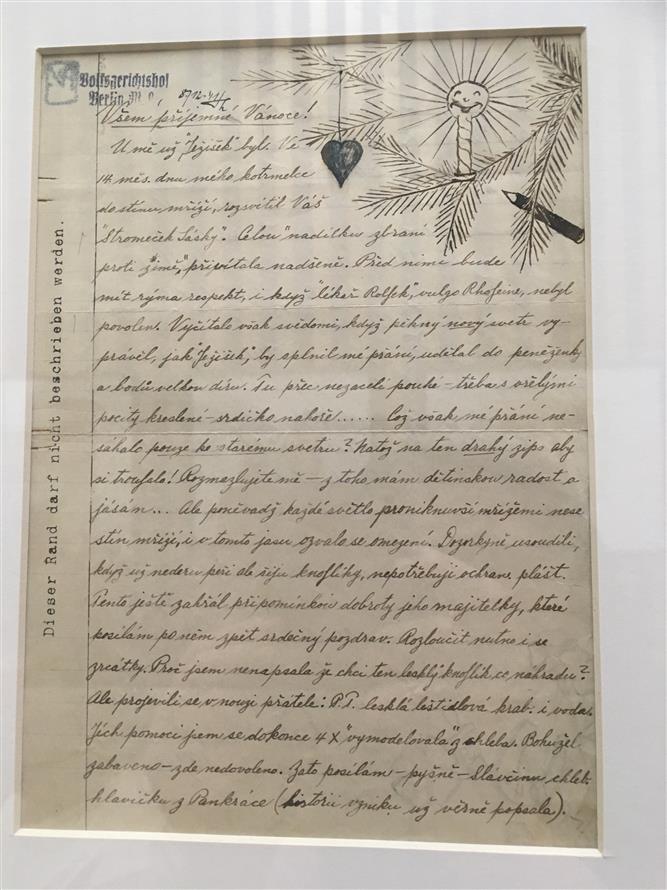 Volksgerichtshof
Berlin
Všem příjemné Vánoce!
U mě už "Ježíšek" byl. Ve
14. měs. dnu mého kotrmelce
do stínu mříží, rozsvítil Váš
"Stromeček Lásky". Celou "nadílku zbraní
proti zimě," přivítala nadšeně. Před nimi bude
mít rýma respekt, i když "lékař Rolfek", vulgo nebyl
povolen. Vyčítalo však svědomí, když pěkný nový svetr vy-
právěl, jak "Ježíšek", by splnil mé přání, udělal do peněženky
a bodů velkou díru. Tu přec nezacelí pouhé - třeba s vřelými
pocity kreslené - srdíčko nahoře......  Což však mé přání ne-
sáhalo pouze ke starému svetru? Natož na ten drahý zips aby
si troufalo! Rozmazlujete mě - z toho mám dětinskou radost a
jásám... Ale poněvadž každé světlo proniknuvší mřížemi nese
stín mříží, i v tomto jasu ozvalo se omezení. Dozorkyně usoudili,
když už nederu peří ale šiju knoflíky, nepotřebuji ochran. plášť.
Tento ještě zahřál připomínkou dobroty jeho majitelky, které
posílám po něm zpět srdečný pozdrav. Rozloučit nutno i se
zrcátky. Proč jsem nenapsala že chci ten lesklý knoflík co náhradu?
Ale projevili se v nouzi přátelé: P.T. lesklá leštidlová krab. i voda.
Jich pomocí jsem se dokonce 4x "vymodelovala" z chleba. Bohužel
zabaveno - zde nedovoleno. Zato posílám - pyšně - Slávčinu chleb.
hlavičku z Pankráce (historii vzniku už věrně popsala).
Dieser Rand darf nicht beschrieben werden.